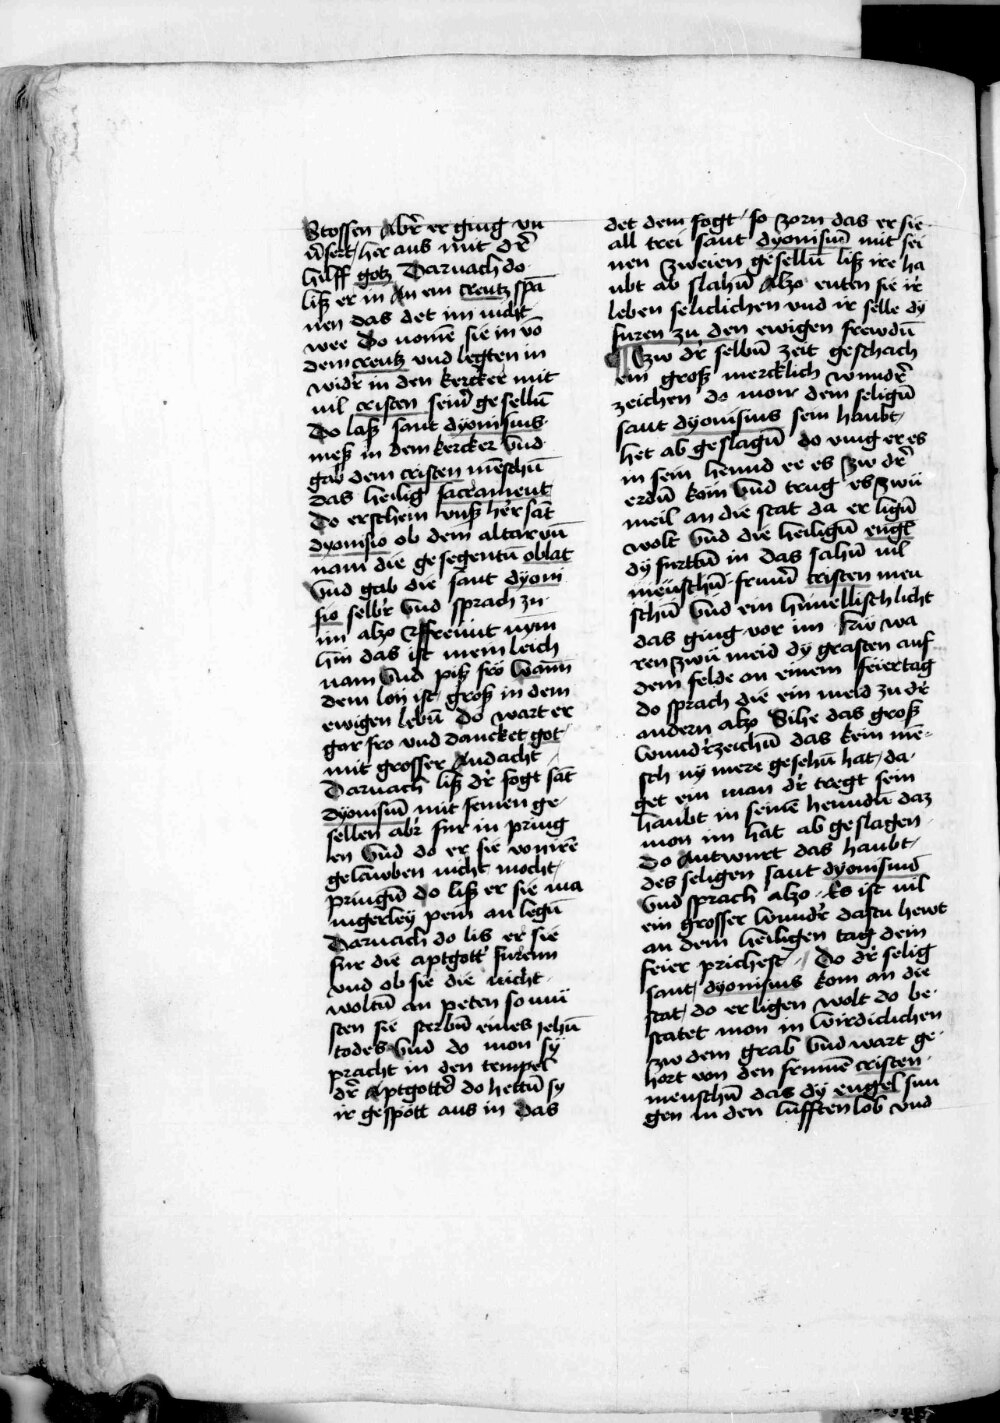 Stossen Abr̄ er ging vn
ūsert / her aus mit dr̄
hilff gotz Darnach do
liß er in An ein creutz spā
nen das det im nicht
wee Do nomē sie in vō
dem creutz vnd legten in
widr̄ in den kercker mit
uil cristen seinr̄ gesellū
Do laß sant dyonisius
meß in dem kercker Vnd
gab dem cristen mēschū
das heilig sacrament
Do erschein vnß her sāt
dyonisio ob dem altar vū
nam die gesegentū oblat
Vnd gab die sant dyoni
sio selbr̄ Vnd sprach zu
im alzo vffreunt nym
hin das ist mein leich
nam Vnd piß frö Wann
dem lon ist / groß in dem
ewigen lebū do wart er
gar fro vnd dancket got
mit grosser Andacht
Darnach liß dr̄ fogt sāt
dyonisiū mit seinen ge-
sellen abr̄ fur in pring
en Vnd do er sie von irē
gelawben nicht mocht /
pringū do liß er sie ma
nigerley pein an legū
Darnach do lis er sie
fur die aptgott furenn
vnd ob sie die nicht
woltū an peten so mü
sten sie sterbū eines iehū
todes Vnd do mon sy
pracht in den tempel
dr̄ Aptgottr̄ do hettū sy
ir gespött aus in Das
det dem fogt / so zorn das er sie
all trei sant dyonisiū mit sei
nen zweien gesellū liß ire ha
ubt ab slahū Alzo enten sie ir
leben seliclichen vnd ir selle dy
furen zu den ewigen frewdū
¶ Zw dr̄ selbū zeit geschach
ein groß mercklich wundr̄
zeichen do mon dem seligū
sant dyonisius sein haubt /
het ab geslagū do ving er es
in sein hennd ee es zw dr̄
erdū kom Vnd trug es zwü
meil an die stat da er ligū
wolt Vnd die heiligū engel
dy furttū in das sahū uil
menschū frumr̄ cristen men
schū Vnd ein himellisch licht
das ging vor im hÿ wa
ren zwü meid dy grasten auf
dem felde an einem feiertag
do sprach die ein meid zu dr̄
andern alzo Sihe das groß
Wundr̄zeichū das kein mē-
sch ny mere gesehū hat / da
get ein man dr̄ tregt sein
haubt in seinē henndū daz
mon im hat ab geslagen
do Antwurt das haubt /
des seligen sant dyonisius
Vnd sprach alzo Es ist uil
ein grosser Wundr̄ dastu hewt
an dem heiligen tag dein
feier prichest / Do dr̄ selig
sant / dyonisius kom an die
stat / do er ligen wolt do be-
statet mon in Wirdiclichen
zw dem grab Vnd wart ge
hort von den frumē cristen
menschū das dy engel sun
gen in den lufften lob vnd